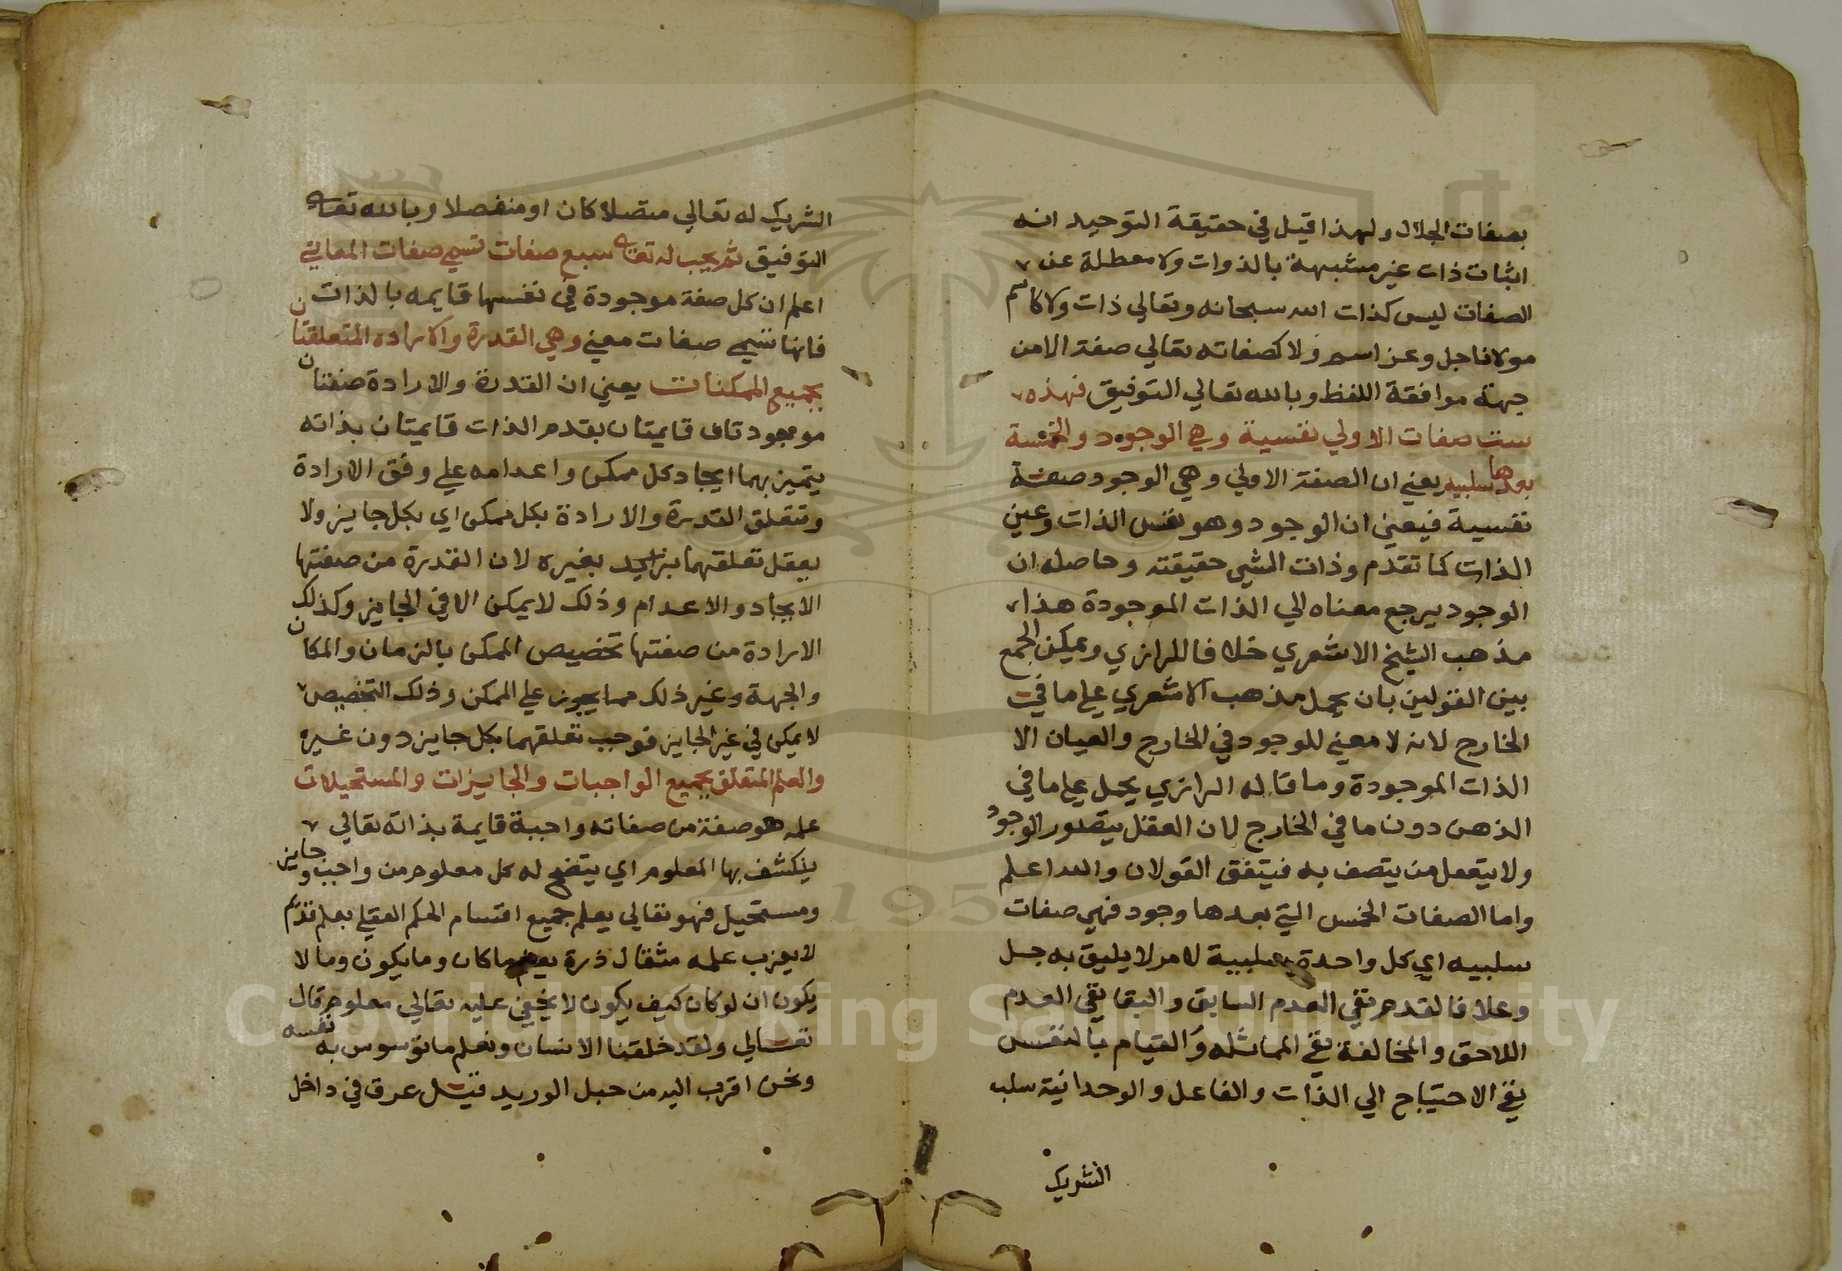 بصفات الجلال ولهذا قيل في حقيقة التوحيد انه
اثبات ذات غير مشبهة بالذوات ولا معطلة عن
الصفات ليس كذات الله سبحانه وتعالي ذات ولا كاسم
مولانا جل وعز اسم ولا كصفاته تعالي صفة الا من
جهة موافقة اللفظ وبالله تعالي التوفيق فهذه
ست صفات الاولي نفسية وهي الوجود والخمسة
بعدها سلبيه يعني ان الصفة الاولي وهي الوجود صفة
نفسية فيعني ان الوجود وهو نفس الذات وعين
الذات كما تقدم وذات الشي حقيقته وحاصله ان
الوجود يرجع معناه الي الذات الموجودة هذا
مذهب الشيخ الاشعري خلافا للرازي ويمكن الجمع
بين القولين بان يحمل مذهب الاشعري علي ما في
الخارج لانه لا معني للوجود في الخارج والعيان الا
الذات الموجودة وما قاله الرازي يحمل علي ما في
الذهن دون ما في الخارج لان العقل يتصور الوجود
ولا يتعقل من يتصف به فيتفق القولان والله اعلم
واما الصفات الخمس التي بعدها وجود فهي صفات
سلبيه اي كل واحدة سلبية لامر لا يليق به جل
وعلا فالقدم نفي العدم السابق والبقا نفي العدم
اللاحق والمخالفة نفي المماثله والقيام بالنفس
نفي الاحتياج الي الذات والفاعل والوحدانية سلب
الشريك
الشريك له تعالي متصلا كان او منفصلا وبالله تعالي
التوفيق ثم يجب له تعالي سبع صفات تسمي صفات المعاني
اعلم ان كل صفة موجودة في نفسها قايمه بالذات
فانها تسمي صفات معني وهي القدرة والاراده المتعلقتان
بجميع الممكنات يعني ان القدرة والارادة صفتان
موجودتان قايمتان بقدم الذات قايمتان بذاته
يتميز بهما ايجاد كل ممكن واعدامه علي وفق الارادة
وتتعلق القدرة والارادة بكل ممكن اي بكل جايز ولا
يعقل تعلقهما بغيره لان القدرة من صفتها
الايجاد والاعدام وذلك لا يمكن الا في الجايز وكذلك
الارادة من صفتها تخصيص الممكن بالزمان والمكان
والجهة وغير ذلك مما يجوز علي الممكن وذلك التخصيص
لا يمكن في غير الجايز فوجب تعلقهما بكل جايز دون غيره
والعلم المتعلق بجميع الواجبات والجايزات والمستحيلات
علمه هو صفة من صفاته واجبة قايمة بذاته تعالي
ينكشف بها المعلوم اي يتضح له كل معلوم من واجب وجايز
ومستحيل فهو تعالي يعلم جميع اقسام الحكم العقلي بعلم قديم
لا يعزب علمه مثقال ذرة يعلم ما كان وما يكون وما لا
يكون ان لو كان كيف يكون لا يخفي عليه تعالي معلوم قال
تعالي ولقد خلقنا الانسان ونعلم ما توسوس به نفسه
ونحن اقرب اليه من حبل الوريد قيل عرق في داخل
Copyright © King Saud University
1957